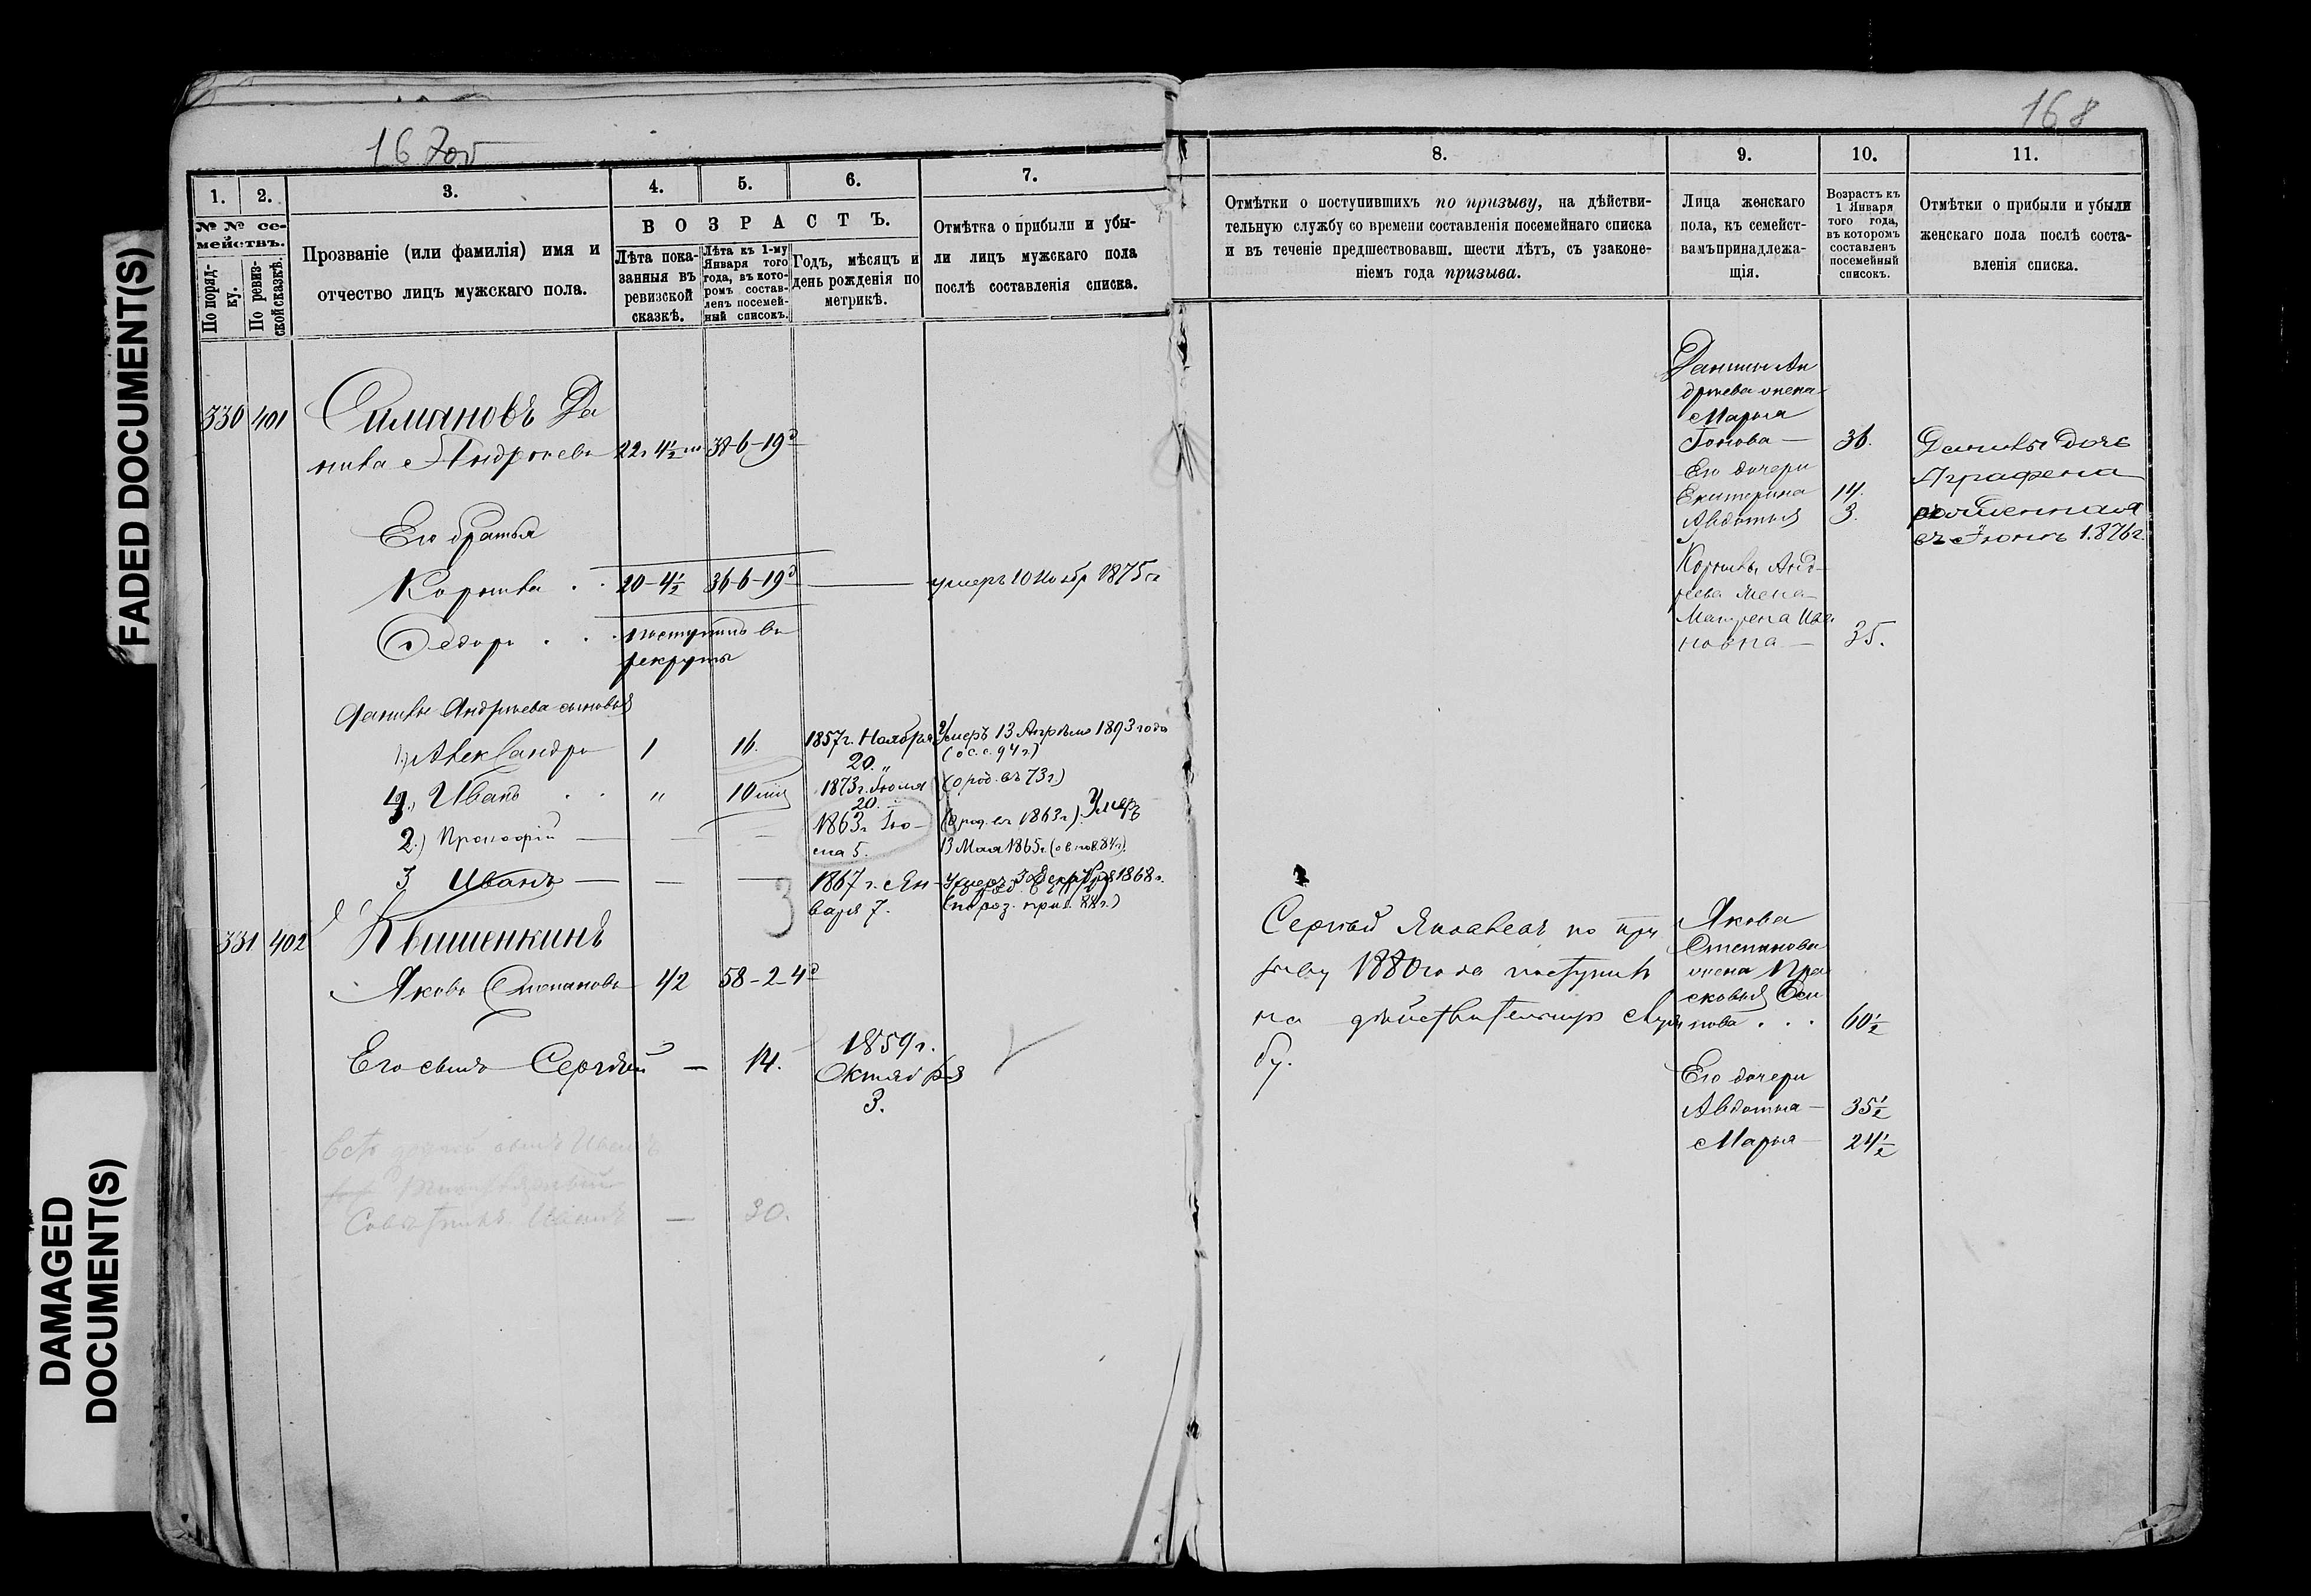 FADED DOCUMENT(S)
DAMAGED
DOCUMENT(S)
167об
1.
2.
3.
4.
5.
6.
7.
№ № се-
мействъ.
По поряд-
ку.
По ревиз-
ской сказкѣ.
Прозваніе (или фамилія) имя и
отчество лицъ мужскаго пола.
ВОЗРАСТЪ.
Лѣта пока-
занныя въ
ревизской
сказкѣ.
Лѣта къ 1-му
Января того
года, въ кото-
ромъ состав-
ленъ посемей-
ный списокъ.
Годъ, мѣсяцъ и
день рожденія по
метрикѣ.
Отмѣтка о прибыли и убы-
ли лицъ мужскаго пола
послѣ составленія списка.
330 401 Симановъ Да
нила Андреевъ 22. 4½ м 38-6-19д
Его братья
20-4½ 36-6-19д — умеръ 10 Ноябр 1875 г
Федоръ . . поступилъ въ
рекруты
Данилы Андреева сыновья
1) Александръ 1 16. 1857 г. Ноября Умеръ 13 Апрѣля 1893 года
20. „ (о с. с. 94 г.)
4., Иванъ . . „ 1873 г. Іюля (о род. въ 73 г.)
20.
2.) Прокофій — — — 1863 г. Iю- (о род. въ 1863 г.) Умеръ
ня 5. 13 Мая 1865 г.
3 Иванъ — — — 1867 г. Ян- Умеръ Декабря 1868 г.
варя 7.
3
331 402 Квашенкинъ
Яковъ Степановъ 42 58-2-4д
Его сынъ Сергѣй — 14. 1859 г.
Октября
3.
Иванъ — 30.
168
8.
9.
10.
11.
Отмѣтки о поступившихъ по призыву, на дѣйстви-
тельную службу со времени составленія посемейнаго списка
и въ теченіе предшествовавш. шести лѣтъ, съ узаконе-
ніемъ года призыва.
Лица женскаго
пола, къ семейст-
вамъ принадлежа-
щія.
Возрастъ къ
1 Января
того года,
въ которомъ
составленъ
посемейный
списокъ.
Отмѣтки о прибыли и убыли
женскаго пола послѣ соста-
вленія списка.
Данилы Ан
дреева жена
Марья
36.
Его дочери
Екатерина 14.
Авдотья 3.
Данилы дочь
Аграфена
рожденная
въ Іюнѣ 1876 г.
Андр-
еева жена
Матрена Ива
новна — 35.
Сергѣй Яковлевъ по при
зыву 1880 года поступилъ
на дѣйствительную служ
бу.
Якова
Степанова
жена Пра
сковья Оси
пова . . . 60½
Его дочери
Авдотья — 35½
Марья — 24½